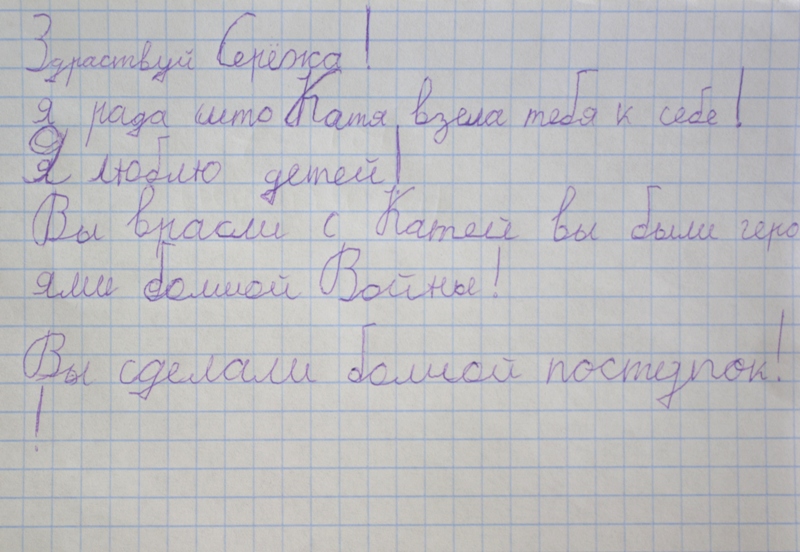 Здраствуй Серёжа!
я рада што Катя взела тебя к себе!
Я люблю детей!
Вы врасли с Катей вы были геро
ями болшой Войны!
Вы сделали болшой постедпок!
!